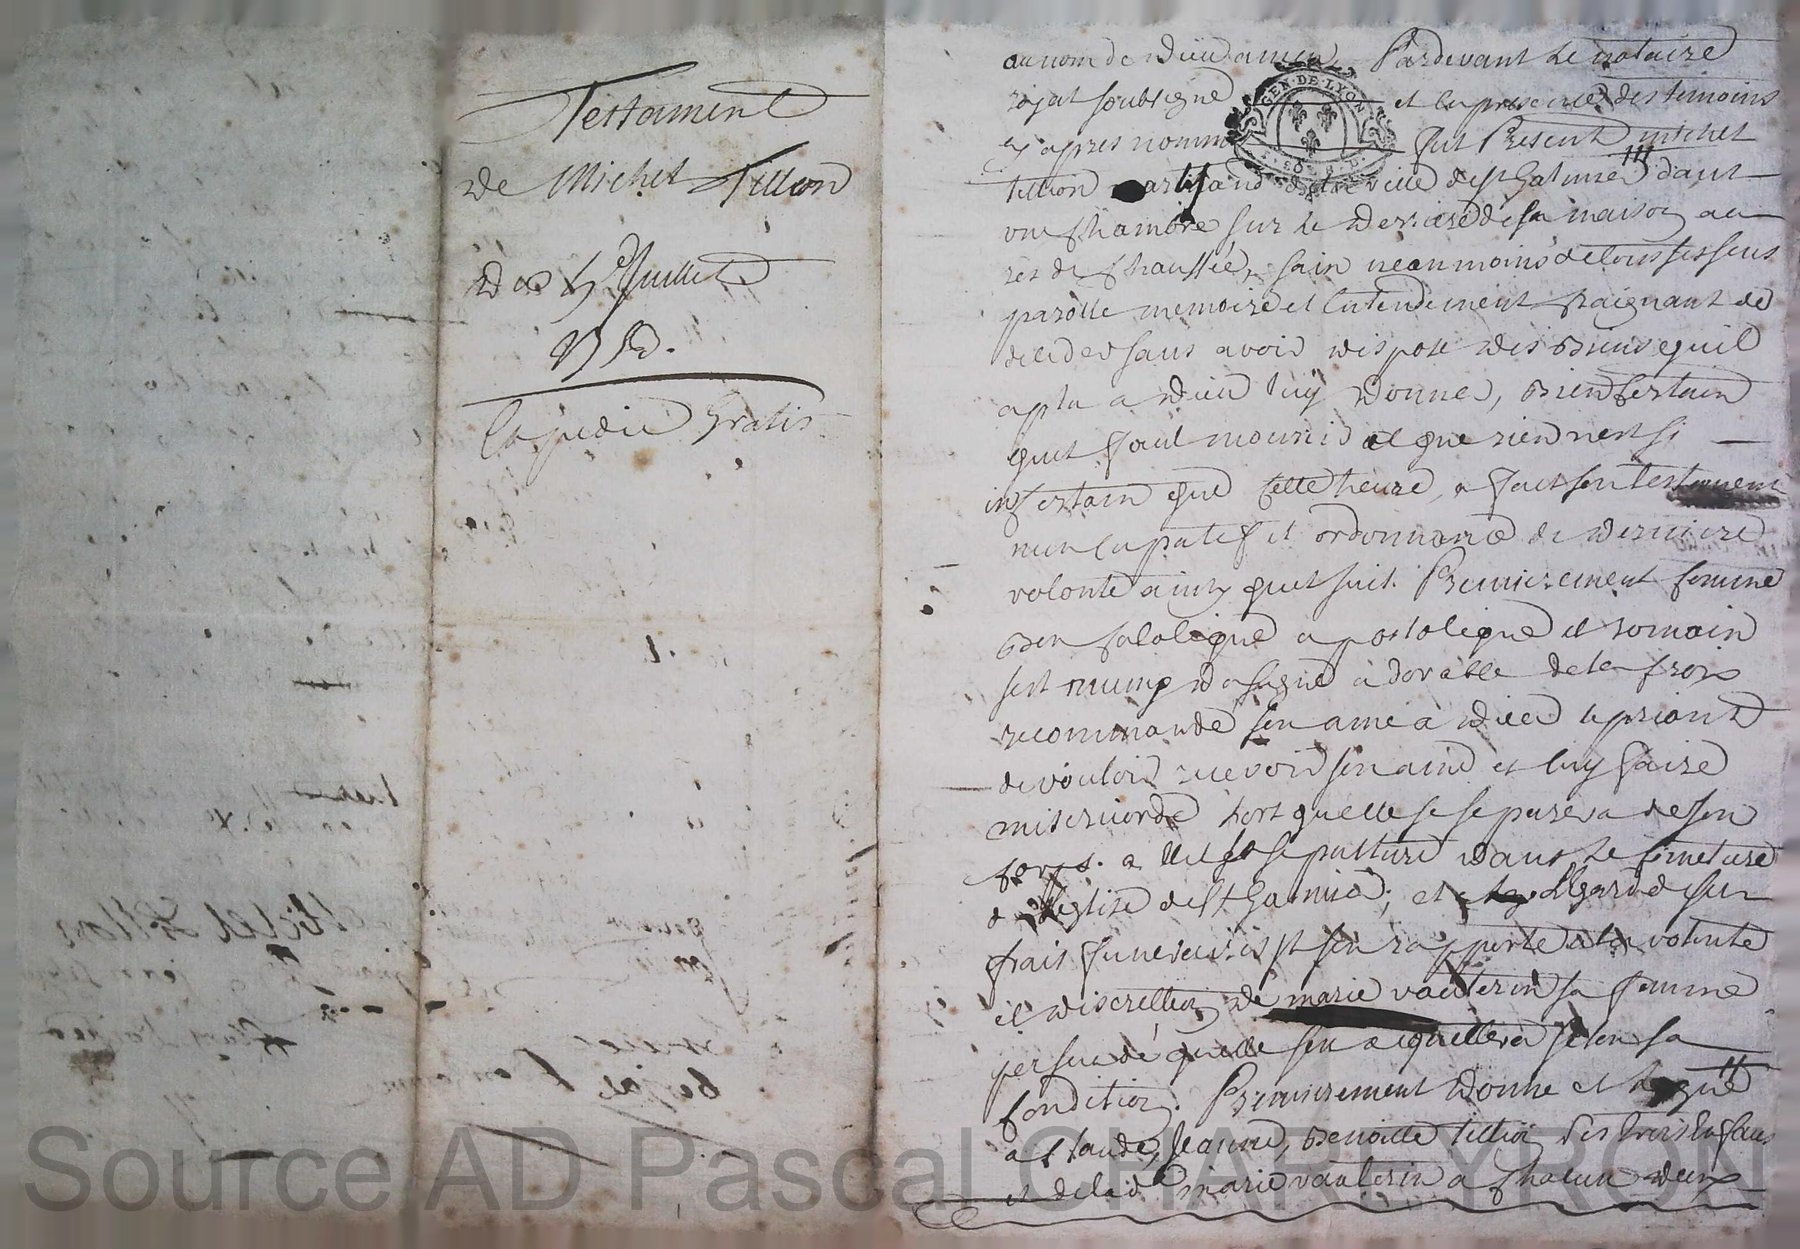 Testament
de Michel Tillion
du 4e Juillet
Expedié Gratis
au nom de dieu amen, Pardevant le notaire
royal soubsigné et en presence des temoins
cy apres nommé fut Present michel
tillion de la ville de st Galmier dans
une chambre sur le derriere de sa maison au
rès de chaussée, sain neanmoins de tous ses sens
parolle memoire et entendement craignant de
deceder sans avoir disposé des biens quil
a plu a dieu luy donner, bien certain
quil faut mourir et que rien nest si
incertain que cette heure, a fait son testament
nuncupatif et ordonnance de derniere
volonté ainsy quil suit. Premierement comme
bon catolique apostolique et romain
sest muny du signe adorable de la croix
recommandé son ame à dieu le priant
de vouloir recevoir son ame et luy faire
misericorde lors quelle se separera de son
corps. a sepulture dans le cimetiere
de leglise de st Galmier; et a Legard de ses
frais funeraires il sen rapporte a la volonté
et discretion de marie vauterin sa femme
persuadé quelle sen acquittera selon sa
condition. Premierement donne et legue
a Claude, Jeanne, benoitte tillion ses trois Enfans
et de lad marie vauterin a chacun deux
GEN·DE·LYON
Source AD Pascal CHAREYRON